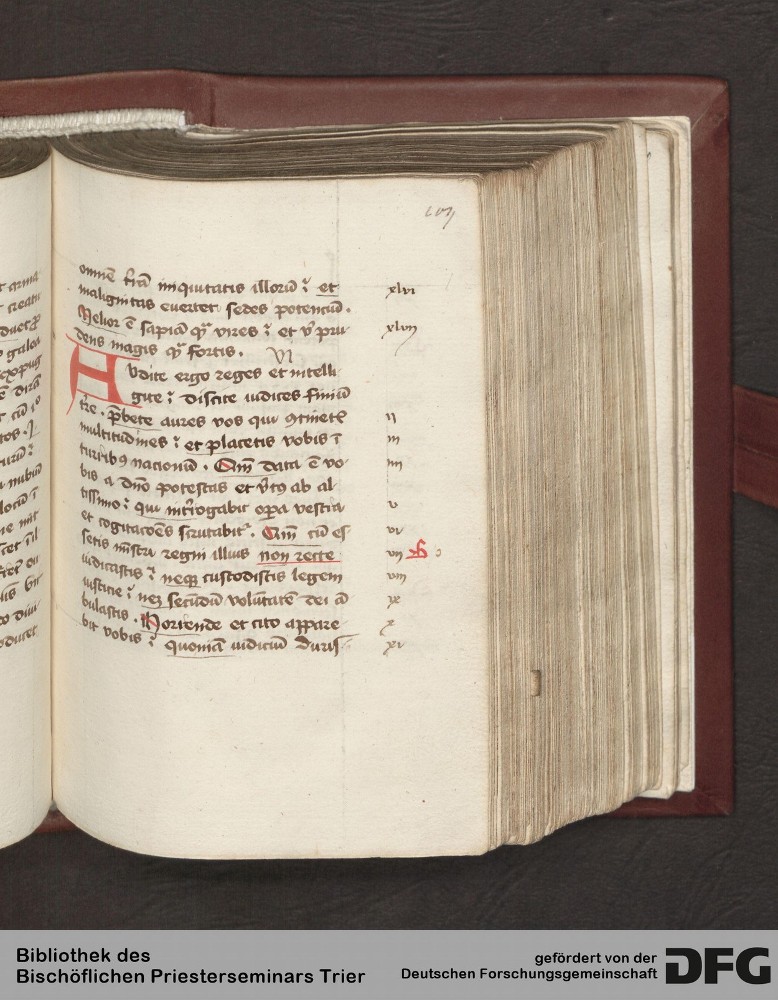 107
omnē trā iniquitatis illorū : et
malignitas euertet sedes potenciū . xlvi
Melior ē sapiā qͣ vires : et v̓ pru xlvij
dens magis qͣ fortis . VI
Audite ergo reges et intelli
gite : discite iudices finiū
tre . p̄bete aures vos qui ꝯtinetꝭ ij
multitudines : et placetis vobis ī iij
turribꝰ nacionū . Qm̄ data ē vo iiij
bis a dn̄o potestas et v̓tꝰ ab al
tissimo : qui int̓rogabit opa vestra v
et cogitacōes scrutabit᷑ . Qm̄ cū es vi
setis mīstri regni illius non recte vij
iudicastis : neqꝫ custodistis legem viij
iusticie : neqꝫ secūdū volūtatē dei ā ix
bulastis . Horrende et cito appare x
bit vobis : quoniā iudiciū duris xi
Bibliothek des
Bischöflichen Priesterseminars Trier
gefördert von der
Deutschen Forschungsgemeinschaft
DFG